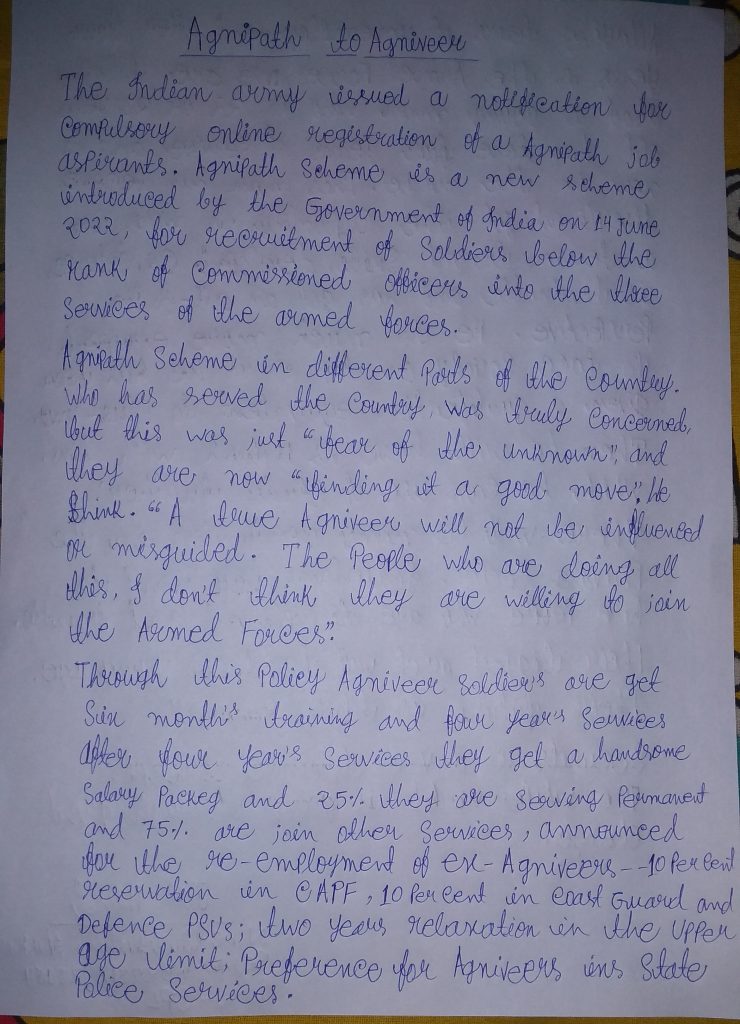 Agnipath to Agniveer
The Indian army issued a notification for
Compulsory online registration of a Agnipath job
aspirants. Agnipath Scheme is a new scheme
introduced by the Government of India on 14 June
2022, for recruitment of Soldiers below the
rank of Commissioned officers into the three
Services of the armed forces.
Agnipath Scheme in different Parts of the Country.
Who has served the Country, was truly Concerned,
but this was just "fear of the unknown", and
they are now "finding it a good move", He
think. "A true Agniveer will not be influenced
or misguided. The People who are doing all
this, I don't think they are willing to join
the Armed Forces".
Through this Policy Agniveer Soldier's are get
Six month's training and four Year's Services
After four Year's Services they get a handsome
Salary Packeg and 25% they are Serving Permanent
and 75% are join other Services, announced
for the re-employment of ex-Agniveers--10 Per Cent
reservation in CAPF, 10 Per cent in Coast Guard and
Defence PSUs; two years relaxation in the Upper
age limit; Preference for Agniveers ins State
Police Services.